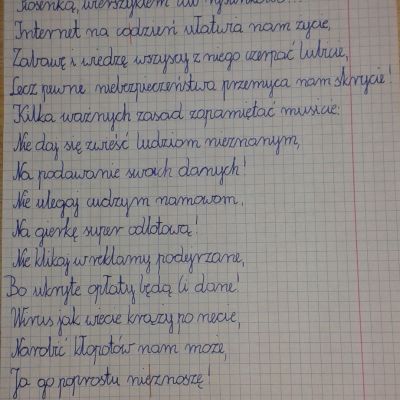 Piosenką, wierszykiem lub rysunkiem...
Internet na codzień ułatwia nam życie,
Zabawę i wiedzę wszyscy z niego czerpać lubicie,
Lecz pewne niebezpieczeństwa przemyca nam skrycie!
Kilka ważnych zasad zapamiętać musicie:
Nie daj się zwieść ludziom nieznanym,
Na podawanie swoich danych!
Nie ulegaj cudzym namowom,
Na gierkę super odlotową!
Nie klikaj w reklamy podejrzane,
Bo ukryte opłaty będą Ci dane!
Wirus jak wiecie krąży po necie,
Narobić kłopotów nam może,
Ja go poprostu nieznoszę!